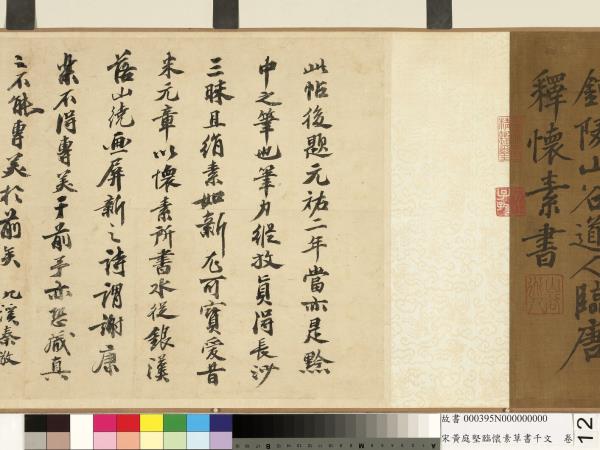 鍾陵山谷道人臨唐
釋懷素書
此帖後題元祐二年當亦是黔
中之筆也筆力縱放真得長沙
三昧且絹素如新尤可寶愛昔
米元章以懷素所書水從銀漢
落山繞畫屏新之詩謂謝康
樂不得專美于前予亦恐藏真
之不能專美於前矣 九溪秦
故書 000395N000000000
宋黃庭堅臨懷素草書千文 卷
12